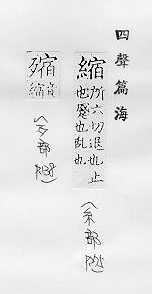 四聲篇海
縮
所六切退也止
也蹙也亂也
糸部
音縮
歹部